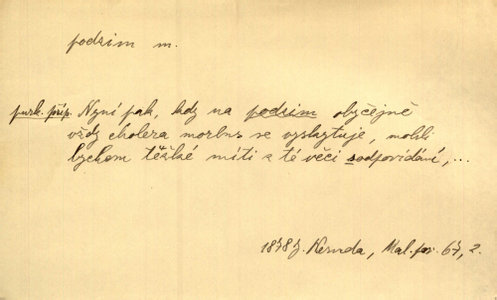 podzim m.
purk. příp. Nyní pak, kdy na podzim obyčejně
vždy cholera morbus se vyskytuje, mohli
bychom těžké míti s té věci sodpovídání, ...
1878 J. Neruda, Mal. pov. 67, 2.